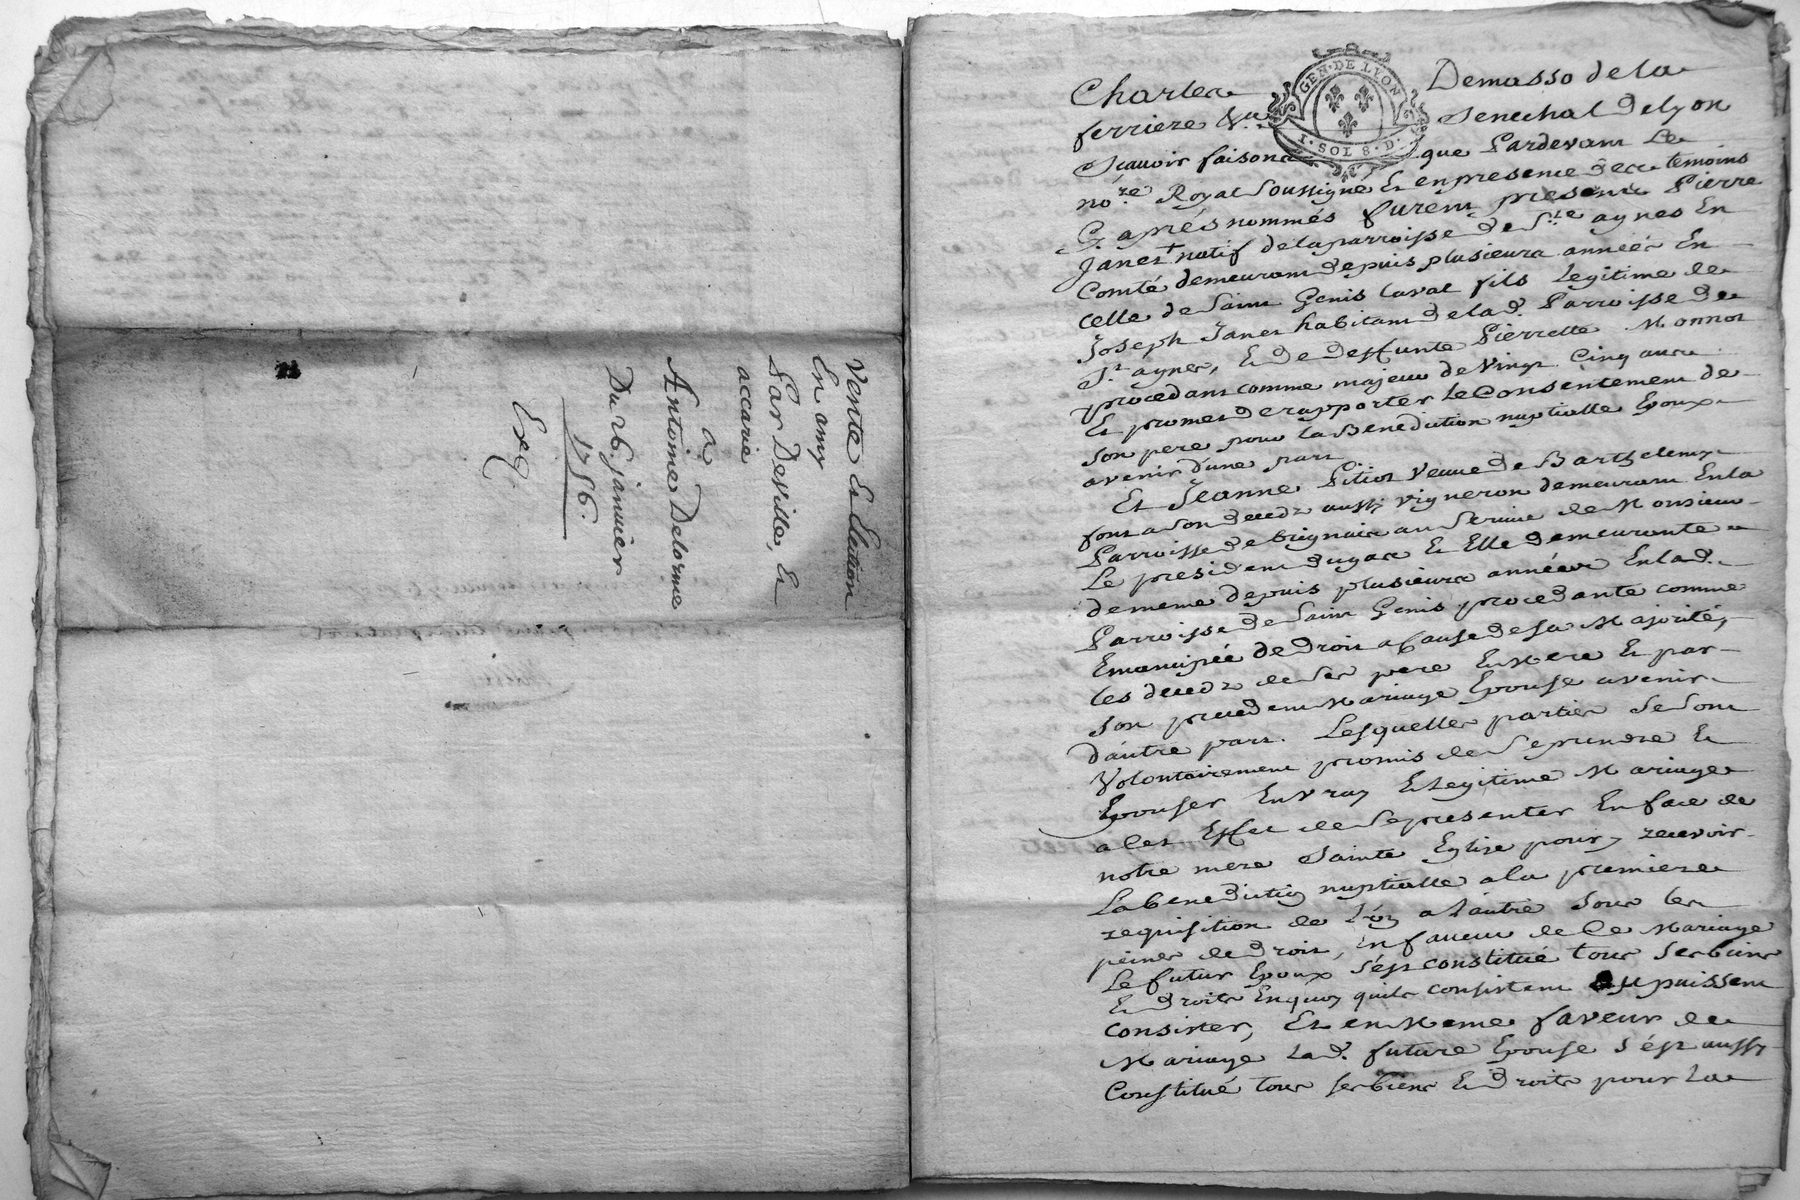 Vente Et Elation
En amy
Par Deville, Et
accarie
a
Antoine Delorme
Du 26. janvier
1756.
Exp
GEN. DE LYON
1. SOL 8. D.
Charles Demasso de la
ferriere Senechal de lyon
Scavoir faisons que Pardevant Le
no.re Royal Soussigné Et en presence des temoins
Cy aprés nommés furent presents Pierre
Janez natif de la parroisse de S.te aynes En
Comté demeurant depuis plusieurs années En
celle de Saint Genis Laval fils Legitime de
Joseph Janez habitant de lad. Parroisse de
St aynes, Et de deffunte Pierrette Monnot
procedant comme majeur de vingt Cinq ans
Et promet de rapporter le Consentement de
Son pere pour la Benediction nuptialle Epoux
avenir d'une part
Et Jeanne Pitiot Veuve de Barthelemy
font a Son deced aussy vigneron demeurant En la
Parroisse de brignais au Service de Monsieur
Le president dugas Et Elle demeurante
de meme depuis plusieurs années En lad.
Parroisse de Saint Genis procedante comme
Emancipée de droit a Cause de sa Majorité,
les deced de Ses pere Et Mere Et par
Son precedent Mariage Epouse avenir
d'autre part. Lesquelles parties Se Sont
Volontairement promis de Se prendre Et
Epouser En vray Et Legitime Mariage
a Cet Effet de Se presenter En face de
notre mere Sainte Eglise pour y recevoir
La benediction nuptialle a la premiere
requisition de L'un a L'autre Sous les
peines de droit, En faveur de Ce Mariage
Le futur Epoux S'est constitué tous Ses biens
Et droits En quoy quils consistent Et puissent
consister, Et en Meme faveur de
Mariage Lad. future Epouse S'est aussy
Constitué tous Ses biens Et droits pour La